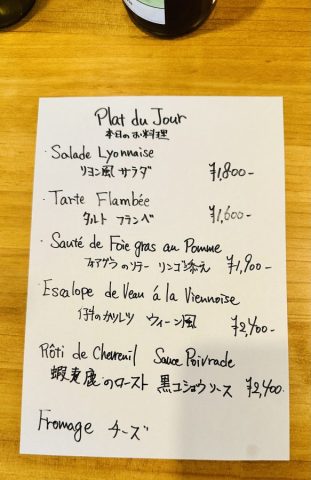 Plat du Jour
本日のお料理
・Salade Lyonnaise
リヨン風 サラダ ¥1,800-
・Tarte Flambée
タルト フランベ ¥1,600-
・Sauté de Foie gras au Pomme
フォアグラのソテー リンゴ添え ¥1,900-
Escalope de Veau á la Viennoise
仔牛のカツレツ ウィーン風 ¥2,400-
Rôti de Chevreuil Sauce Poivrade
蝦夷鹿のロースト 黒コショウソース ¥2,400-
Fromage チーズ